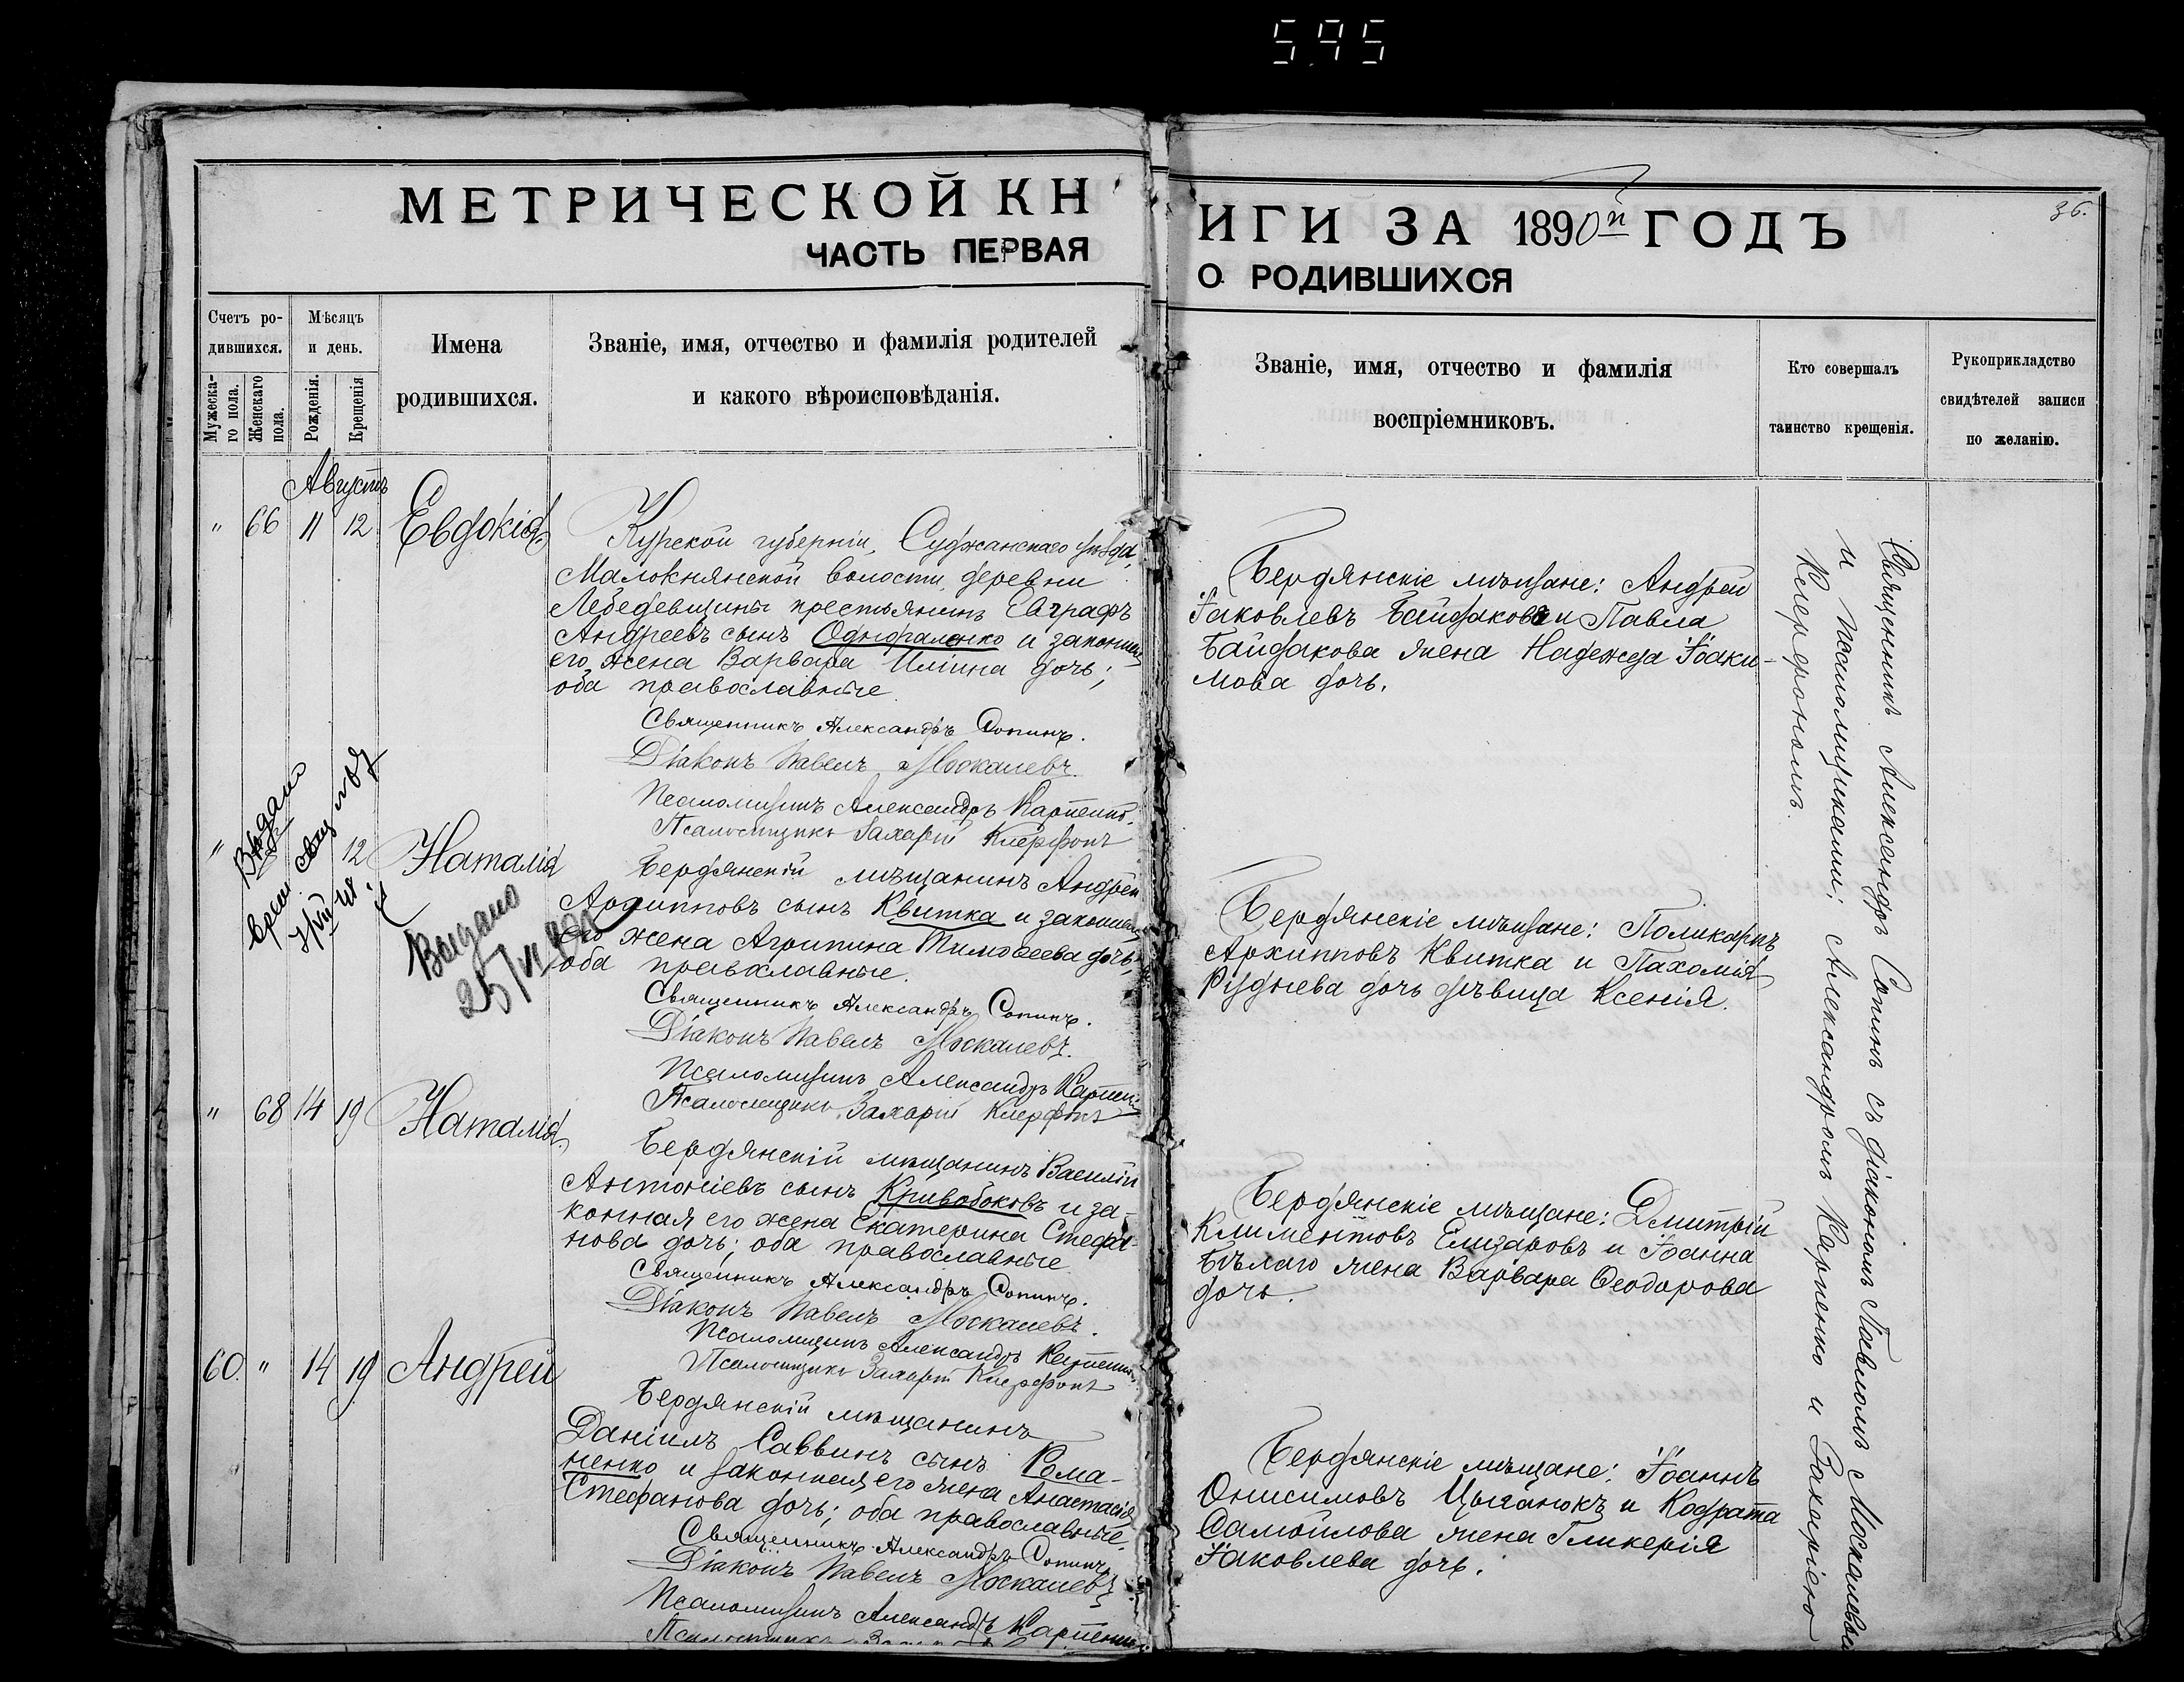 595
МЕТРИЧЕСКОЙ КН
ЧАСТЬ ПЕРВАЯ
Счетъ ро-
дившихся.
Мужеска-
го пола.
Женскаго
пола.
Мѣсяцъ
и день.
Рожденія.
Крещенія
Имена
родившихся.
Званіе, имя, отчество и фамилія родителей
и какого вѣроисповѣданія.
Августъ
" 66 11 12 Евдокія
Курской губерніи, Суджанскаго уѣзда,
Малокнянской волости, деревни
Лебедевщины крестьянинъ Евграфъ
Андреевъ сынъ и законная
его жена Варвара Иліина дочь;
оба православные
Священникъ Александръ Сопинъ.
Діаконъ Павелъ Москалевъ.
Псаломщикъ Александръ Карпенко.
Псаломщикъ Захарій Клерфонъ
Выдано
" 12 Наталія
Выдано
25/VI
Бердянскій мѣщанинъ Андрей
Архипповъ сынъ Квитка и законная
его жена Агрипина Тимоѳеева дочь;
оба православные.
Священникъ Александръ Сопинъ.
Діаконъ Павелъ Москалевъ.
Псаломщикъ Александръ Карпенко
Псаломщикъ Захарій Клерфонъ
" 68 14 19 Наталія
Бердянскій мѣщанинъ Василій
Антоніевъ сынъ Кривобоковъ и за-
конная его жена Екатерина Стефа-
нова дочь; оба православные
Священникъ Александръ Сопинъ.
Діаконъ Павелъ Москалевъ.
Псаломщикъ Александръ Карпенко
Псаломщикъ Захарій Клерфонъ
60 " 14 19 Андрей
Бердянскій мѣщанинъ
Даніилъ Саввинъ сынъ Рома-
ненко и законная его жена Анастасія
Стефанова дочь; оба православные.
Священникъ Александръ Сопинъ
Діаконъ Павелъ Москалевъ
Псаломщикъ Александръ Карпенко
Псаломщикъ
36.
ИГИ ЗА 1890й ГОДЪ
О РОДИВШИХСЯ
Званіе, имя, отчество и фамилія
воспріемниковъ.
Кто совершалъ
таинство крещенія.
Рукоприкладство
свидѣтелей записи
по желанію.
Бердянскіе мѣщане: Андрей
Іаковлевъ Байдаковъ и Павла
Байдакова жена Надежда Іоаки-
мова дочь.
Бердянскіе мѣщане: Поликарпъ
Архипповъ Квитка и Пахомія
Руднева дочь дѣвица Ксенія.
Бердянскіе мѣщане: Дмитрій
Климентовъ Елизаровъ и Іоанна
Бѣлаго жена Варвара Ѳеодорова
дочь.
Бердянскіе мѣщане: Іоаннъ
Онисимовъ Цыганокъ и Кодрата
Самойлова жена Гликерія
Іаковлева дочь.
Священникъ Александръ Сопинъ съ діакономъ Павломъ Москалевымъ
и псаломщиками: Александромъ Карпенко и Захаріемъ
Клерфономъ.